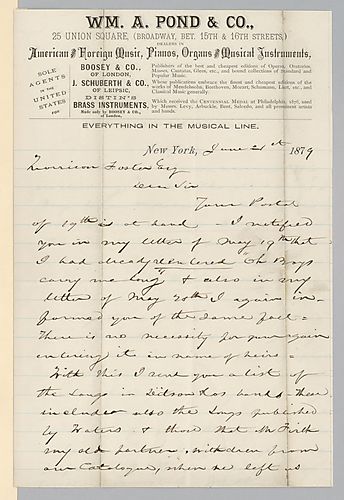 WM. A. POND & CO.,
25 UNION SQUARE, (BROADWAY, BET. 15TH & 16TH STREETS,)
DEALERS IN
American and Foreign Music, Pianos, Organs and Musical Instruments,
SOLE AGENTS IN THE UNITED STATES FOR
BOOSEY & CO., OF LONDON,
Publishers of the best and cheapest editions of Operas, Oratorios, Masses, Cantatas, Glees, etc., and bound collections of Standard and Popular Music.
J. SCHUBERTH & CO. OF LEIPSIC,
Whose publications embrace the finest and cheapest editions of the works of Mendelssohn, Beethoven, Mozart, Schumann, Liszt, etc., and Classical Music generally.
DISTIN'S BRASS INSTRUMENTS.
Made only by BOOSEY & CO., of London.
Which received the CENTENNIAL MEDAL at Philadelphia, 1876, used by Messrs. Levy, Arbuckle, Bent, Salcedo, and all prominent artists and bands.
EVERYTHING IN THE MUSICAL LINE.
New York, June 21st 1879
Morrison Foster Esq
Dear Sir
Your Postal
of 19th is at hand - I notified
you in my letter of May 19th that
I had already entered "The Boys
carry me long" & also in my
letter of May 20th I again in-
formed you of the same fact =
There is no necessity for your again
entering it in name of heirs =
With this I send you a list of
the Songs in Ditson & Cos hands - These
includes also the Songs published
by Waters & those that Mr Firth
my old partner, withdrew from
our Catalogue, when he left us